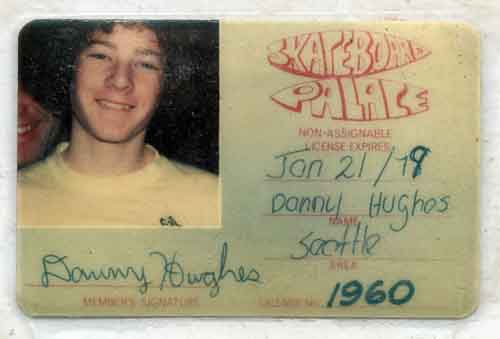 SKATEBOARD
PALACE
NON-ASSIGNABLE
LICENSE EXPIRES
Jan 21/78
Danny Hughes
NAME
Seattle
AREA
Danny Hughes
MEMBER'S SIGNATURE
LICENSE NO. 1960